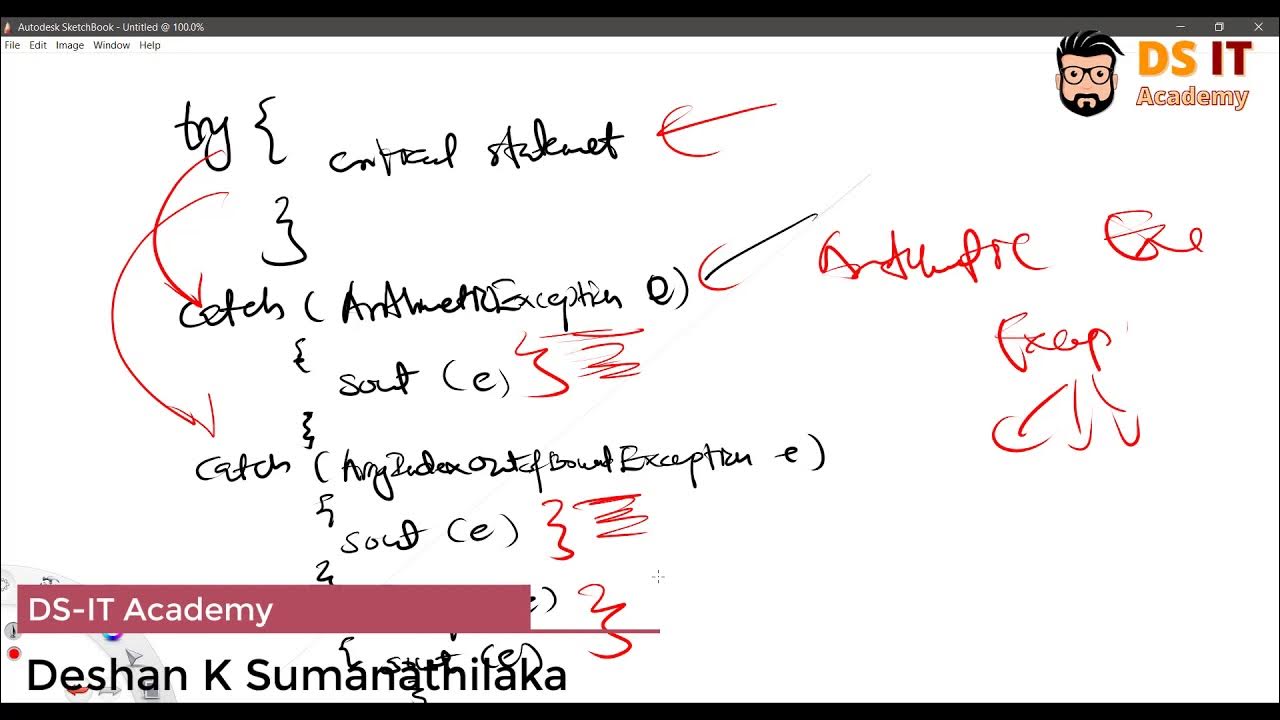 Autodesk SketchBook - Untitled @ 100.0%
File Edit Image Window Help
DS IT
Academy
try {
critical statemet
}
Arithmetic Exe
catch ( ArithmeticException e)
Excep
{
sout (e) }
}
catch ( ArryIndexOutofBoundException e )
{
sout (e) }
}
e) }
{ sout (e)
}
DS-IT Academy
Deshan K Sumanathilaka